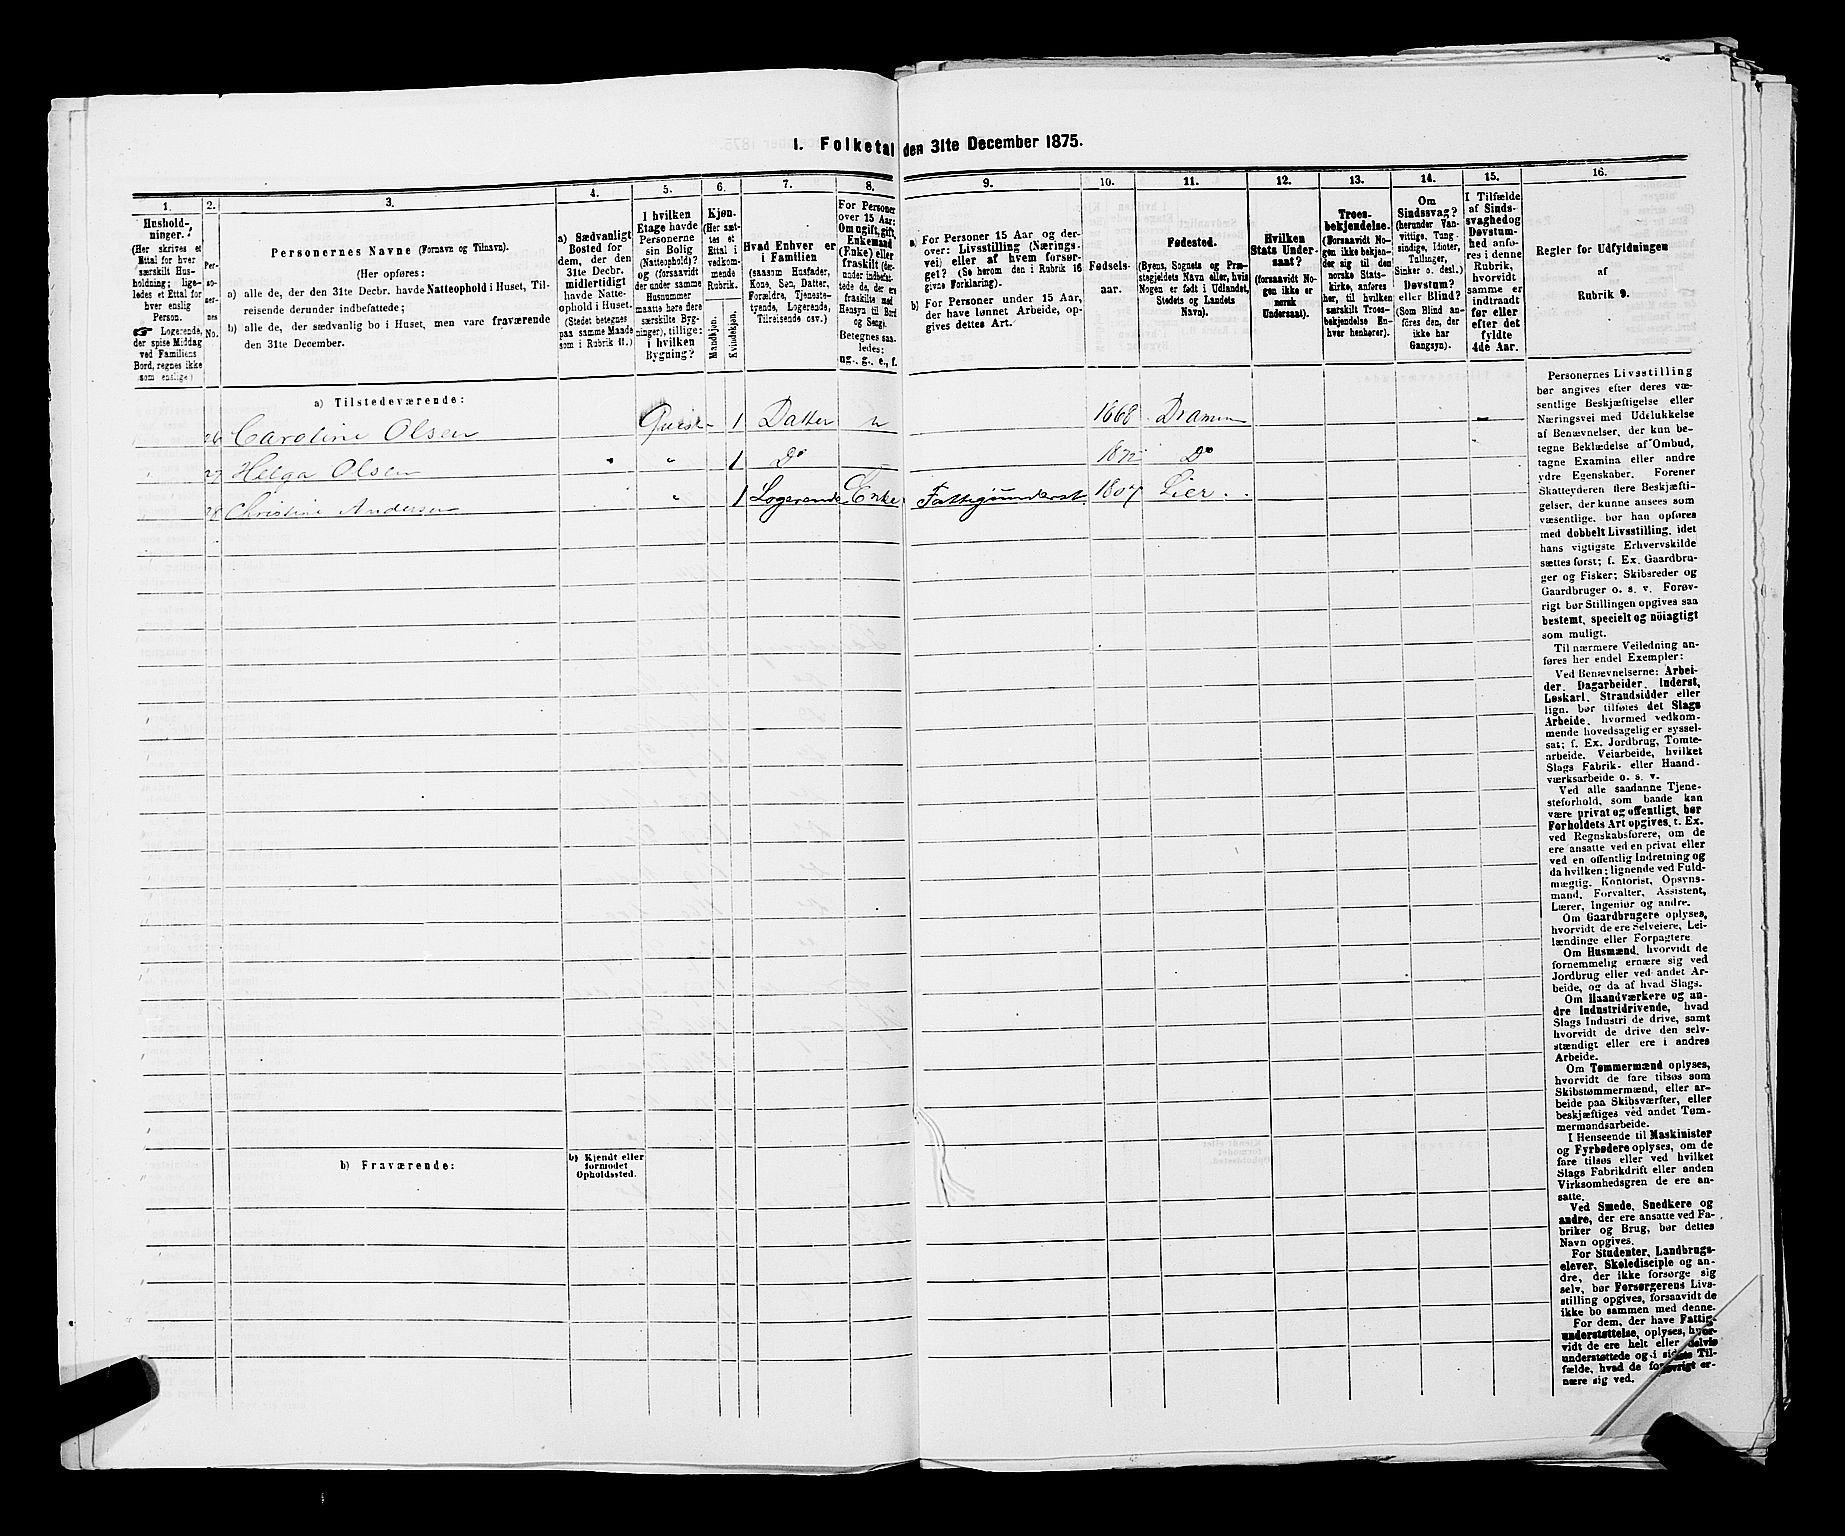 I. Folketal den 31te December 1875.
1.
2.
3.
4.
5.
6.
7.
8.
9.
10.
11.
12.
13.
14.
15.
16.
Hushold-
ninger.
(Her skrives et
Ettal for hver
særskilt Hus-
holdning; lige-
ledes et Ettal for
hver enslig
Person.
☛ Logerende,
der spise Middag
ved Familiens
Bord, regnes ikke
som enslige)
Per-
so-
ner-
nes
No.
Personernes Navne (Fornavn og Tilnavn).
(Her opføres:
a) alle de, der den 31te Decbr. havde Natteophold i Huset, Til-
reisende derunder indbefattede;
b) alle de, der sædvanlig bo i Huset, men vare fraværende
den 31te December.
a) Sædvanligt
Bosted for
dem, der den
31te Decbr.
midlertidigt
havde Natte-
ophold i Huset.
(Stedet betegnes
paa samme Maade
som i Rubrik 11.)
I hvilken
Etage havde
Personerne
sin Bolig
(Natteophold)?
og (forsaavidt
der under samme
Husnummer
maatte høre flere
særskilte Byg-
ninger), tillige:
i hvilken
Bygning?
Kjøn.
(Her sæt-
tes et
Ettal i
vedkom-
mende
Rubrik.
Mandkjøn.
Kvindekjøn.
Hvad Enhver er
i Familien
(saasom Husfader,
Kone, Søn, Datter,
Forældre, Tjeneste-
tyende, Logerende,
Tilreisende osv.)
For Personer
over 15 Aar:
Om ugift, gift,
Enkemand
(Enke) eller
fraskilt (der-
under indbefat-
tede de, der ere
fraskilte med
Hensyn til Bord
og Seng).
Betegnes saa-
ledes:
ug., g., e., f.
a) For Personer 15 Aar og der-
over: Livsstilling (Nærings-
vei) eller af hvem forsør-
get? (Se herom den i Rubrik 16
givne Forklaring).
b) For Personer under 15 Aar,
der have lønnet Arbeide, op-
gives dettes Art.
Fødsels-
aar.
Fødested.
(Byens, Sognets og Præ-
stegjeldets Navn eller, hvis
Nogen er født i Udlandet,
Stedets og Landets
Navn).
Hvilken
Stats Under-
saat?
(forsaavidt No-
gen ikke er
norsk
Undersaat).
Troes-
bekjendelse.
(Forsaavidt No-
gen ikke bekjen-
der sig til den
norske Stats-
kirke, anføres
her, til hvilken
særskilt Troes-
bekjendelse En-
hver henhører).
Om
Sindssvag?
(herunder Van-
vittige, Tung-
sindige, Idioter,
Tullinger,
Sinker o. desl.)
Døvstum?
eller Blind?
(Som Blind an-
føres den, der
ikke har
Gangsyn).
I Tilfælde
af Sinds-
svaghed og
Døvstum-
hed anfø-
res i denne
Rubrik,
hvorvidt
samme er
indtraadt
før eller
efter det
fyldte
4de Aar.
Regler for Udfyldningen
af
Rubrik 9.
a) Tilstedeværende:
26 Caroline Olsen Qvist 1 Datter u 1868 Dramen
27 Helga Olsen „ 1 Do 1872 Do
28 Christine Andersen „ 1 Logerende Enke Fattigunderst. 1807 Lier
b) Fraværende:
b) Kjendt eller
formodet
Opholdssted.
Personernes Livsstilling
bør angives efter deres væ-
sentlige Beskjæftigelse eller
Næringsvei med Udelukkelse
af Benævnelser, der kun be-
tegne Beklædelse af Ombud,
tagne Examina eller andre
ydre Egenskaber. Forener
Skatteyderen flere Beskjæfti-
gelser, der kunne ansees som
væsentlige, bør han opføres
med dobbelt Livsstilling, idet
hans vigtigste Erhvervskilde
sættes først; f. Ex. Gaardbru-
ger og Fisker; Skibsreder og
Gaardbruger o. s. v. Forøv-
rigt bør Stillingen opgives saa
bestemt, specielt og nöiagtigt
som muligt.
Til nærmere Veiledning an-
føres her endel Exempler:
Ved Benævnelserne: Arbei-
der, Dagarbeider, Inderst,
Løskarl, Strandsidder eller
lign. bør tilføies det Slags
Arbeide, hvormed vedkom-
mende hovedsagelig er syssel-
sat; f. Ex. Jordbrug, Tomte-
arbeide, Veiarbeide, hvilket
Slags Fabrik- eller Haand-
værksarbeide o. s. v.
Ved alle saadanne Tjene-
steforhold, som baade kan
være privat og offentligt, bør
Forholdets Art opgives, t. Ex.
ved Regnskabsførere, om de
ere ansatte ved en privat eller
ved en offentlig Indretning og
da hvilken; lignende ved Fuld-
mægtig, Kontorist, Opsyns-
mand, Forvalter, Assistent,
Lærer, Ingeniør og andre.
Om Gaardbrugere oplyses,
hvorvidt de ere Selveiere, Lei-
lændinge eller Forpagtere
Om Husmænd, hvorvidt de
fornemmelig ernære sig ved
Jordbrug eller ved andet Ar-
beide, og da af hvad Slags.
Om Haandværkere og an-
dre Industridrivende, hvad
Slags Industri de drive, samt
hvorvidt de drive den selv-
stændigt eller ere i andres
Arbeide.
Om Tømmermænd oplyses,
hvorvidt de fare tilsøs som
Skibstømmermænd, eller ar-
beide paa Skibsværfter, eller
beskjæftiges ved andet Tøm-
mermandsarbeide.
I Henseende til Maskinister
og Fyrbødere oplyses, om de
fare tilsøs eller ved hvilket
Slags Fabrikdrift eller anden
Virksomhedsgren de ere an-
satte.
Ved Smede, Snedkere og
andre, der ere ansatte ved Fa-
briker og Brug, bør dettes
Navn opgives.
For Studenter, Landbrugs-
elever, Skoledisciple og an-
dre, der ikke forsørge sig
selv, bør Forsørgerens Livs-
stilling opgives, forsaavidt de
ikke bo sammen med denne.
For dem, der have Fattig-
understøttelse, oplyses, hvor-
vidt de ere helt eller delvis
understøttede og i sidste Til-
fælde, hvad de forøvrigt er-
nære sig ved.